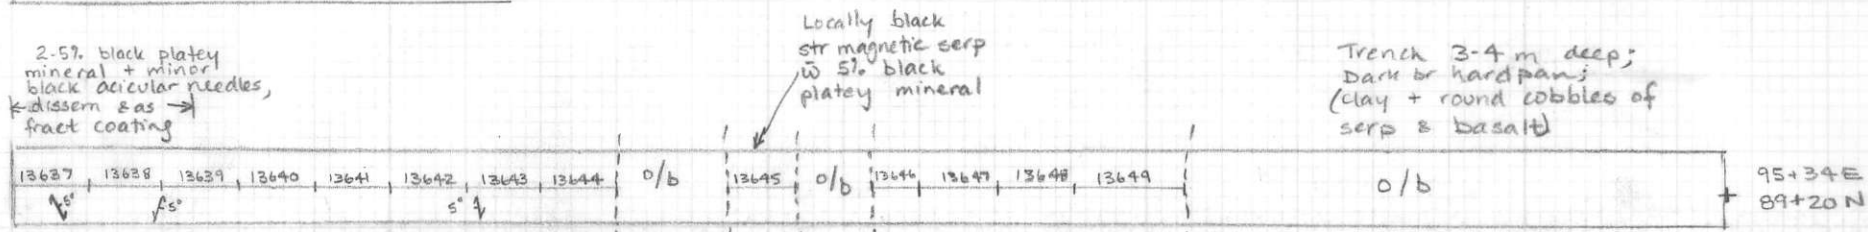 2-5% black platey
mineral + minor
black acicular needles,
dissem & as
fract coating
Locally black
str magnetic serp
w̄ 5% black
platey mineral
Trench 3-4 m deep;
Dark br hardpan;
(clay + round cobbles of
serp & basalt)
13637 13638 13639 13640 13641 13642 13643 13644 o/b 13645 o/b 13646 13647 13648 13649 o/b
5° 5° 5°
95+34E
89+20N